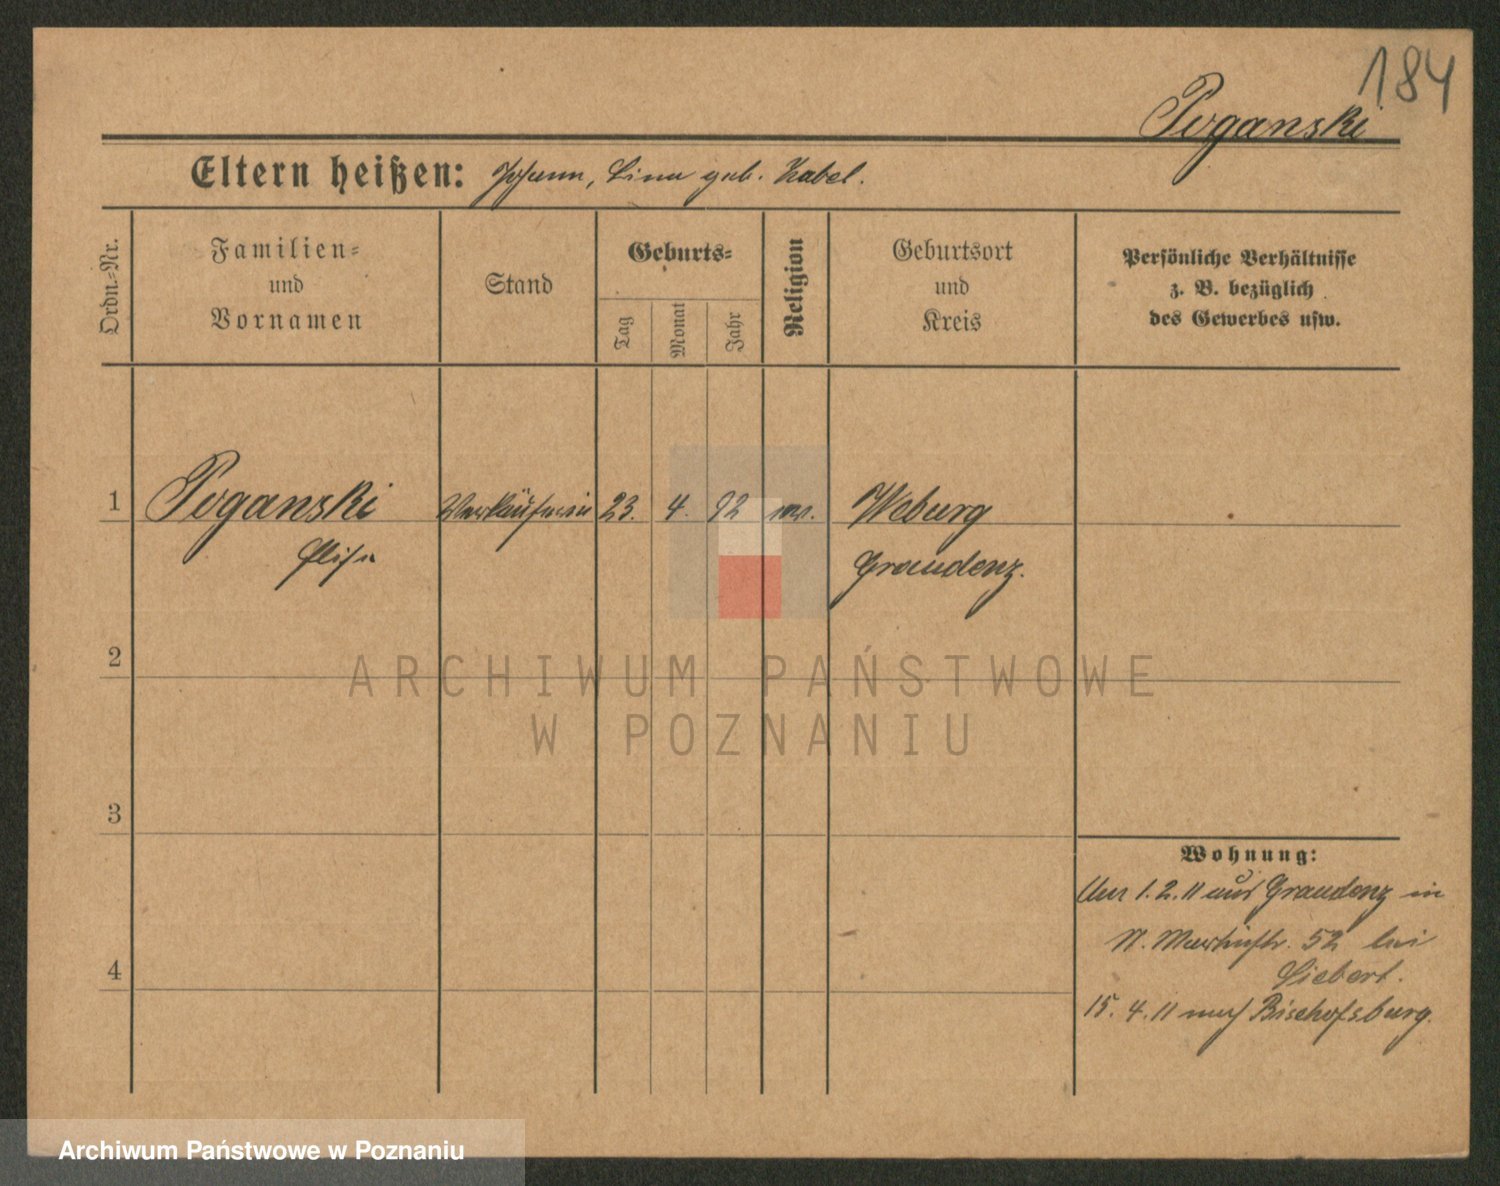 184
Poganski
Eltern heißen: Johann, Lina geb. Kabel.
Ordn.-Nr.
Familien=
und
Vornamen
Stand
Geburts=
Tag
Monat
Jahr
Religion
Geburtsort
und
Kreis
Persönliche Verhältnisse
z. B. bezüglich
des Gewerbes usw.
1 Poganski Verkäuferin 23. 4. 92 ev. Weburg
Elise Graudenz.
2
ARCHIWUM PAŃSTWOWE
W POZNANIU
3
4
Wohnung:
1.2.11 aus Graudenz in
St. Martinstr. 52 bei
Siebert.
15. 4. 11 nach Bischofsburg.
Archiwum Państwowe w Poznaniu